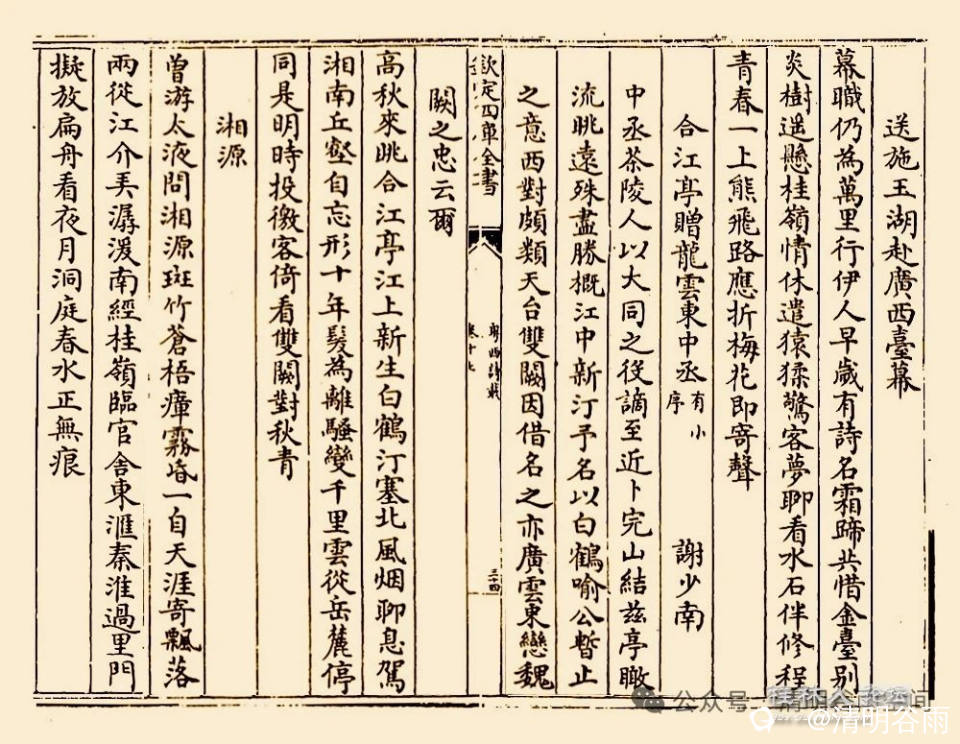 送施玉湖赴廣西臺幕
幕職仍為萬里行伊人早歲有詩名霜蹄共惜金臺别
炎樹遥懸桂嶺情休遣猿猱驚客夢聊看水石伴修程
青春一上熊飛路應折梅花即寄聲
合江亭贈龍雲東中丞有小序 謝少南
中丞茶陵人以大同之役謫至近卜完山結茲亭瞰
流眺遠殊盡勝概江中新汀予名以白鶴喻公暫止
之意西對頗類天台雙闕因借名之亦廣雲東戀魏
闕之忠云爾
欽定四庫全書
粤西詩載
三十四
高秋來眺合江亭江上新生白鶴汀塞北風烟聊息駕
湘南丘壑自忘形十年髮為離騷變千里雲從岳麓停
同是明時投徼客倚看雙闕對秋青
湘源
曽游太液問湘源斑竹蒼梧瘴霧昏一自天涯寄飄落
兩從江介弄潺湲南經桂嶺臨官舍東滙秦淮過里門
擬放扁舟看夜月洞庭春水正無痕
公众号
@清明谷雨